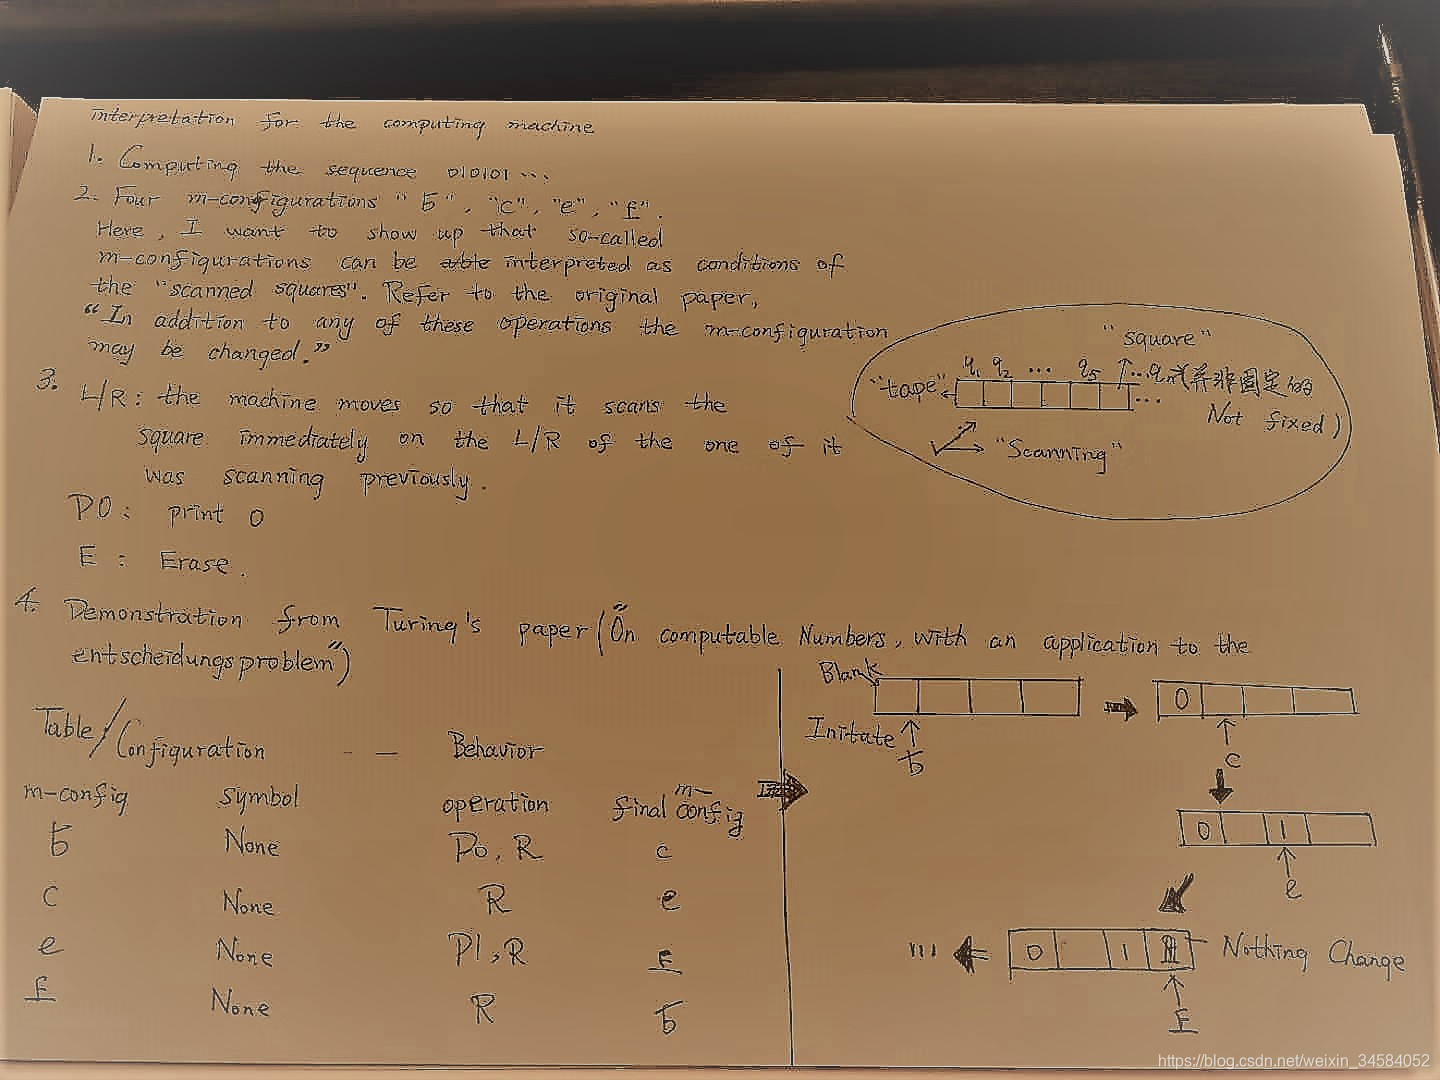 interpretation for the computing machine
1. Computing the sequence 010101 ...
2. Four m-configurations "b", "c", "e", "f".
Here, I want to show up that so-called
m-configurations can be able interpreted as conditions of
the "scanned squares". Refer to the original paper,
"In addition to any of these operations the m-configuration
may be changed."
3. L/R: the machine moves so that it scans the
square immediately on the L/R of the one of it
was scanning previously.
PO: print 0
E: Erase.
"square"
q1 q2 ... q5 ...qn(并非固定的
"tape" ...
Not fixed)
"Scanning"
4. Demonstration from Turing's paper("On computable Numbers, with an application to the
entscheidungsproblem")
Table/Configuration -- Behavior
m-config symbol operation final m-config
b None Po, R c
c None R e
e None P1, R f
f None R b
Blank
Initate
b
0
c
0 1
e
0 1
... Nothing Change
f
https://blog.csdn.net/weixin_34584052